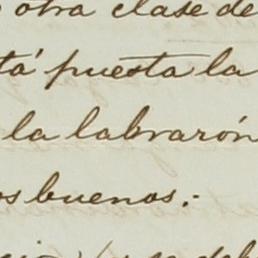 otra clase de
tá puesta la
la labrarón
os buenos.